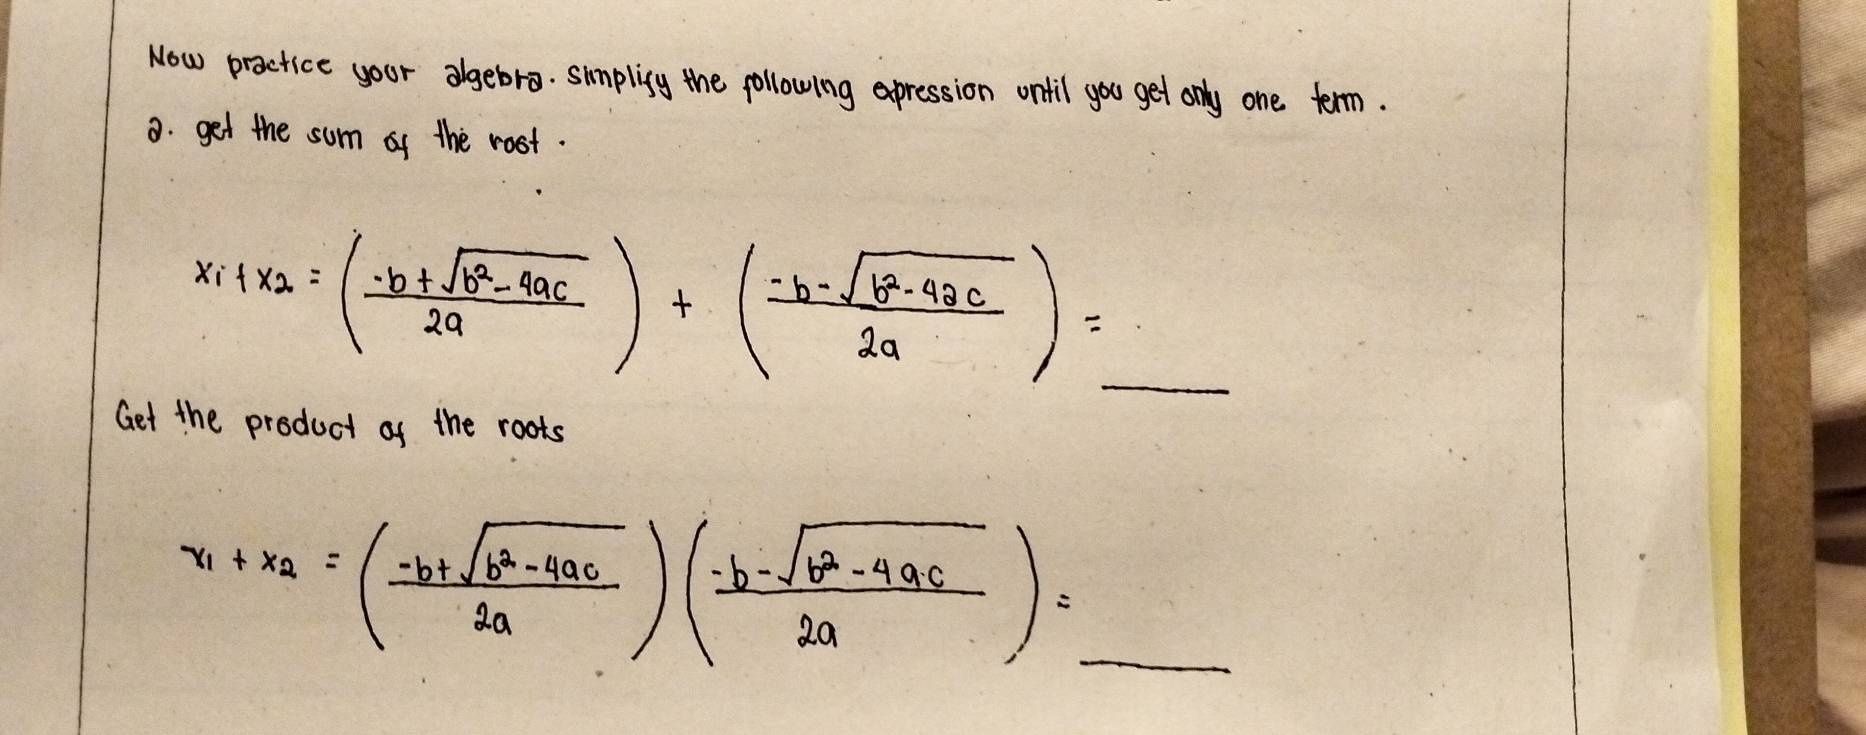 Now practice your algebra. Simplify the following expression until you get only one term.
a. get the sum of the root.
x₁ + x₂ = ((-b + √(b² - 4ac)) / 2a) + ((-b - √(b² - 4ac)) / 2a) = ____
Get the product of the roots
x₁ + x₂ = ((-b + √(b² - 4ac)) / 2a) ((-b - √(b² - 4a.c)) / 2a) = ____